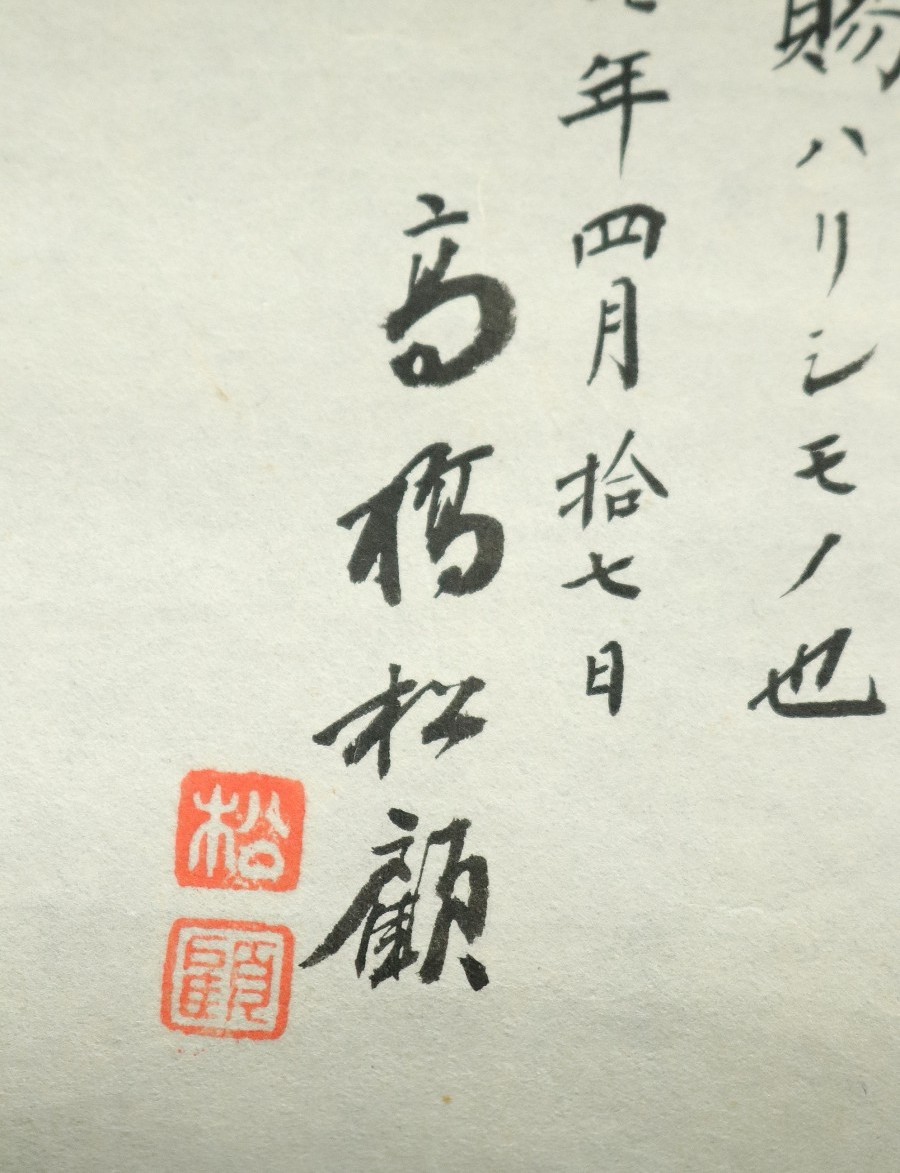 賜ハリシモノ也
年四月拾七日
高橋松顧
松
顧